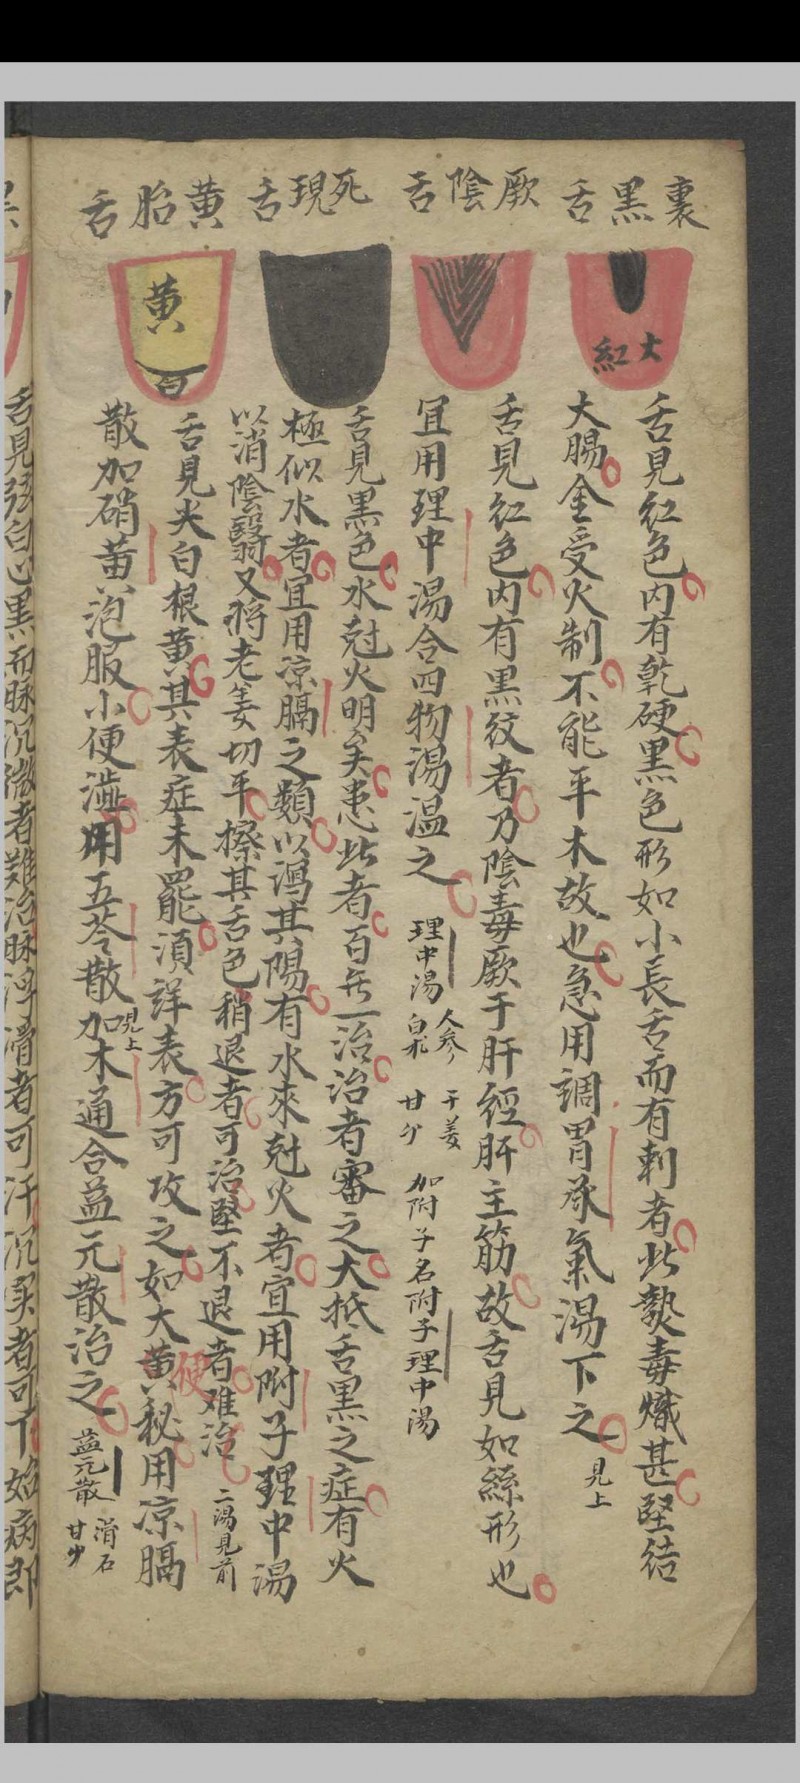 裏黑舌
厥陰舌
死現舌
黄胎舌
大紅
黄
白
舌見紅色内有乾硬黑色形如小長舌而有刺者此熱毒熾甚堅結
大腸金受火制不能平木故也急用調胃承氣湯下之 見上
舌見紅色内有黑紋者乃陰毒厥于肝經肝主筋故舌見如絲形也
宜用理中湯合四物湯温之 理中湯 人參 白朮 干姜 甘 加附子名附子理中湯
舌見黑色水尅火明矣患此者百無一治治者審之大抵舌黑之症有火
極似水者宜用凉膈之類以瀉其陽有水來尅火者宜用附子理中湯
以消陰翳又将老姜切平擦其舌色稍退者可治堅不退者难治 二湯見前
舌見尖白根黄其表症未罷須詳表方可攻之如大便黄秘用凉膈
散加硝黄泡服小便澁用五苓散 見上 加木通合益元散治之 益元散 滑石 甘
舌見弦白心黑而脉沉微者難治脉浮滑者可汗沉実者可下始病即